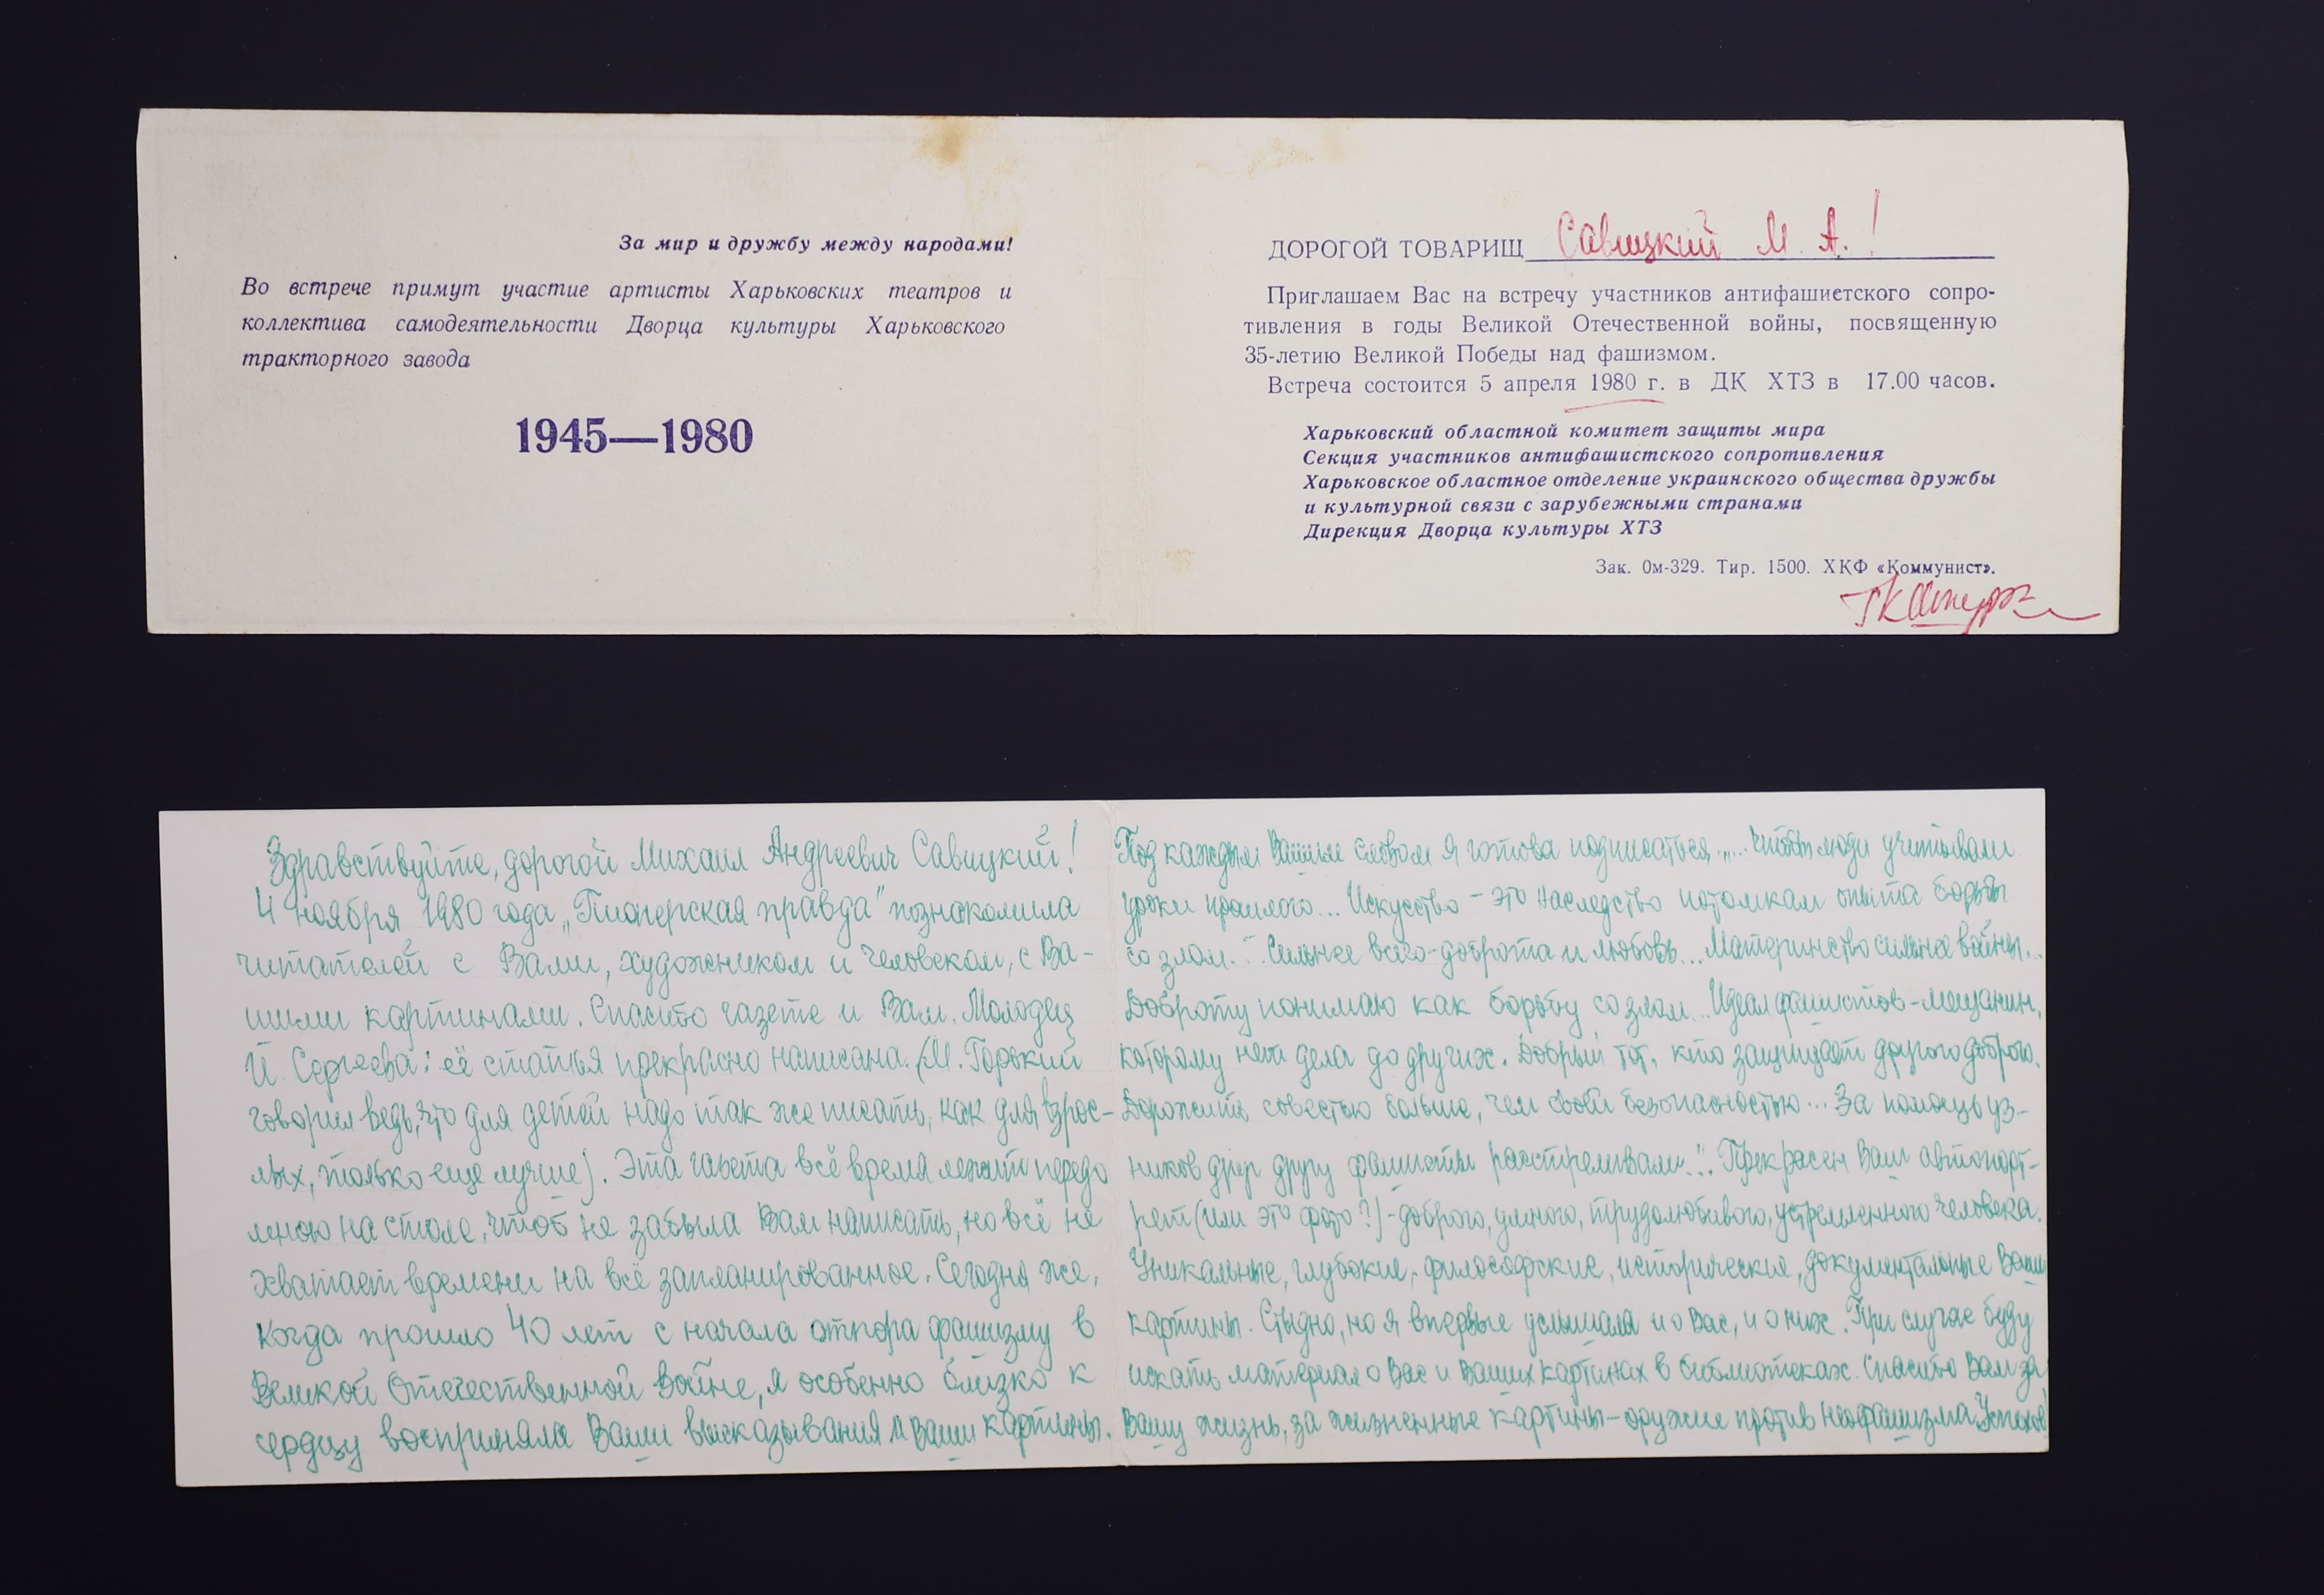 За мир и дружбу между народами!
Во встрече примут участие артисты Харьковских театров и
коллектива самодеятельности Дворца культуры Харьковского
тракторного завода
1945—1980
ДОРОГОЙ ТОВАРИЩ Савицкий М. А.!
Приглашаем Вас на встречу участников антифашистского сопро-
тивления в годы Великой Отечественной войны, посвященную
35-летию Великой Победы над фашизмом.
Встреча состоится 5 апреля 1980 г. в ДК ХТЗ в 17.00 часов.
Харьковский областной комитет защиты мира
Секция участников антифашистского сопротивления
Харьковское областное отделение украинского общества дружбы
и культурной связи с зарубежными странами
Дирекция Дворца культуры ХТЗ
Зак. Ом-329. Тир. 1500. ХКФ «Коммунист».
Здравствуйте, дорогой Михаил Андреевич Савицкий!
4 ноября 1980 года „Пионерская правда" познакомила
читателей с Вами, художником и человеком, с Ва-
шими картинами. Спасибо газете и Вам. Молодец
И. Сергеева: её статья прекрасно написана. (М. Горький
говорил ведь, что для детей надо так же писать, как для взрос-
лых, только еще лучше). Эта газета всё время лежит передо
мною на столе, чтоб не забыла Вам написать, но всё не
хватает времени на всё запланированное. Сегодня же,
когда прошло 40 лет с начала отпора фашизму в
Великой Отечественной войне, я особенно близко к
сердцу восприняла Ваши высказывания и Ваши картины.
Под каждым Вашим словом я готова подписаться „... чтобы люди учитывали
уроки прошлого... Искусство - это наследство потомкам опыта борьбы
со злом... Сильнее всего - доброта и любовь... Материнство сильнее войны...
Доброту понимаю как борьбу со злом... Идеал фашистов - мещанин,
которому нет дела до других. Добрый тот, кто защищает другого доброго.
Дорожить совестью больше, чем своей безопасностью... За помощь уз-
ников друг другу фашисты расстреливали...". Прекрасен Ваш автопорт-
рет (или это фото?) - доброго, умного, трудолюбивого, устремленного человека.
Уникальные, глубокие, философские, исторические, документальные Ваши
картины. Стыдно, но я впервые услышала и о Вас, и о них. При случае буду
искать материал о Вас и Ваших картинах в библиотеках. Спасибо Вам за
Вашу жизнь, за жизненные картины - оружие против неофашизма. Успехов!